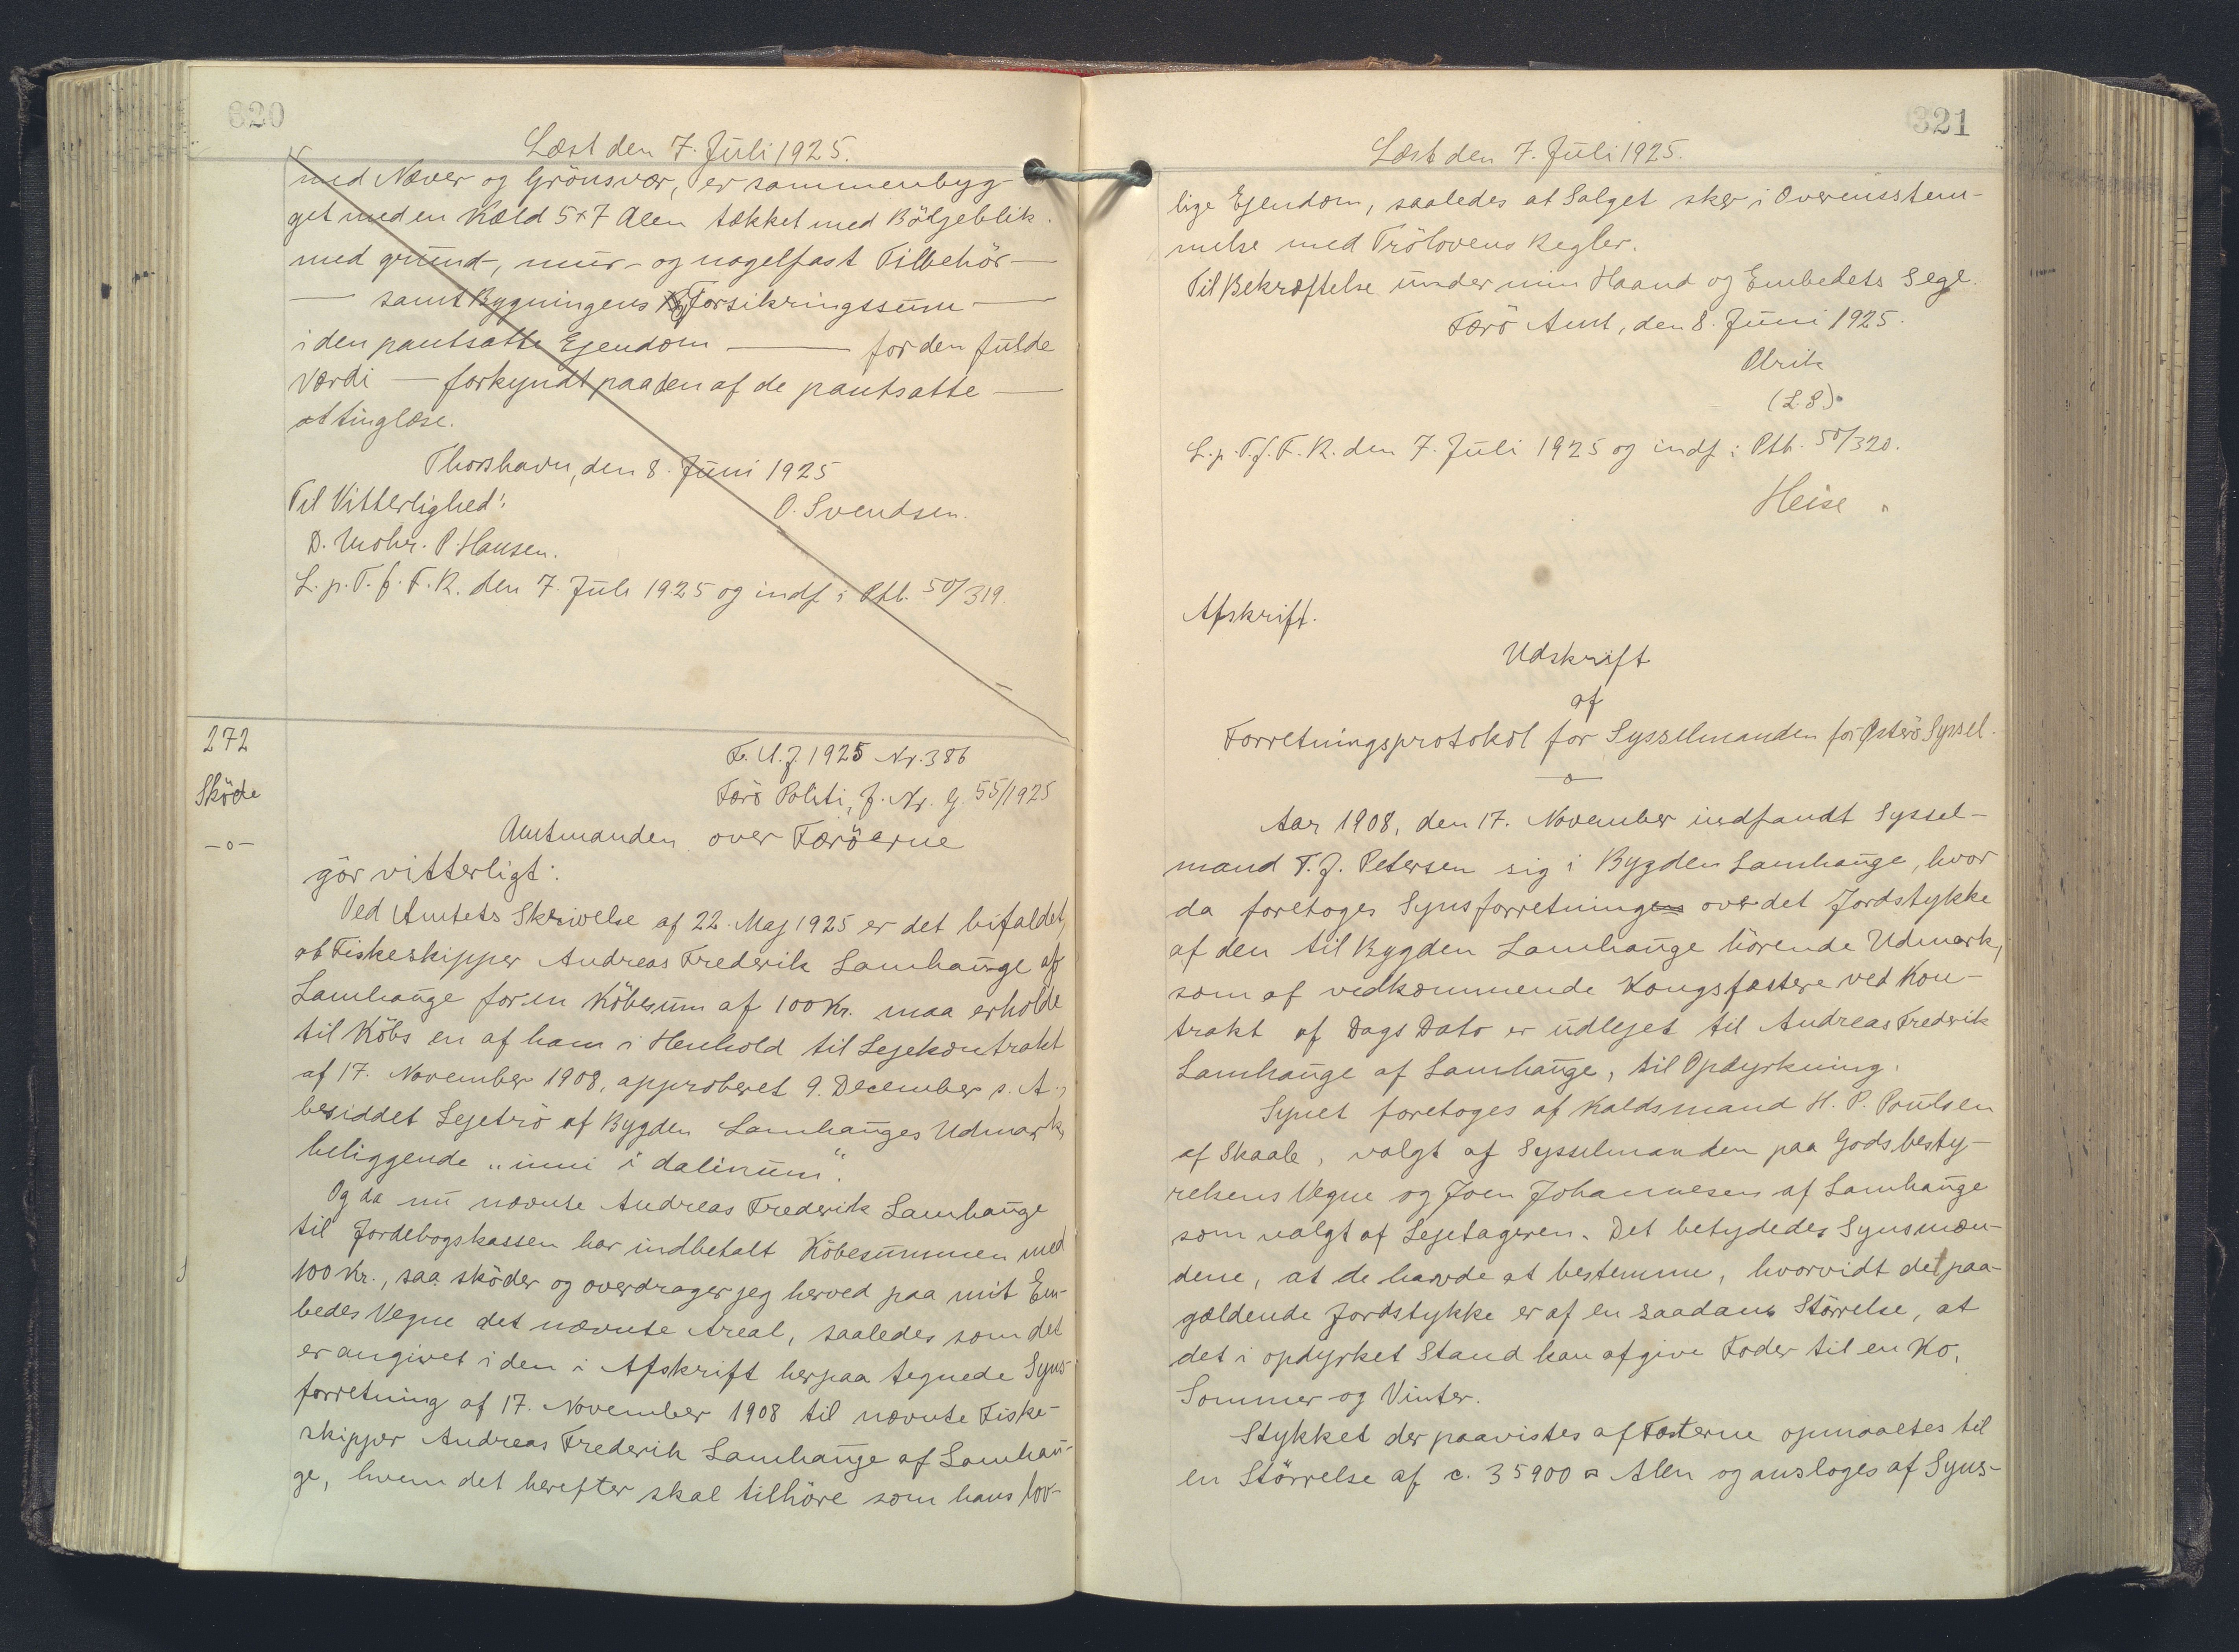 320
Læst den 7. Juli 1925.
med Næver og Grönsvær, er sammenbyg-
get med en Kæld 5 x 7 Alen tækket med Bölgeblik.
med grund-, mur- og nagelfast Tilbehör —
— samt Bygningens Forsikringssum —
i den pantsatte Ejendom — for den fulde
Værdi — forkyndt paa den af de pantsatte —
at tinglæse.
Thorshavn, den 8. Juni 1925
Til Vitterlighed:
O. Svendsen.
D. Mohr. P. Hansen.
L. p. T. f. F. R. den 7. Juli 1925 og indf i Ptb. 50/319.
272
Sköde
-o-
F. A. J. 1925 Nr. 386
Færö Politi, J. Nr. G. 55/1925
Amtmanden over Færöerne
gör vitterligt:
Ved Amtets Skrivelse af 22. Maj 1925 er det bifaldet,
at Fiskeskipper Andreas Frederik Lamhauge af
Lamhauge for en Köbesum af 100 Kr. maa erholde
til Köbs en af ham i Henhold til Lejekontrakt
af 17. November 1908, approberet 9. December s. A.,
besiddet Lejetrö af Bygden Lamhauges Udmark,
beliggende „inni i dalinum“.
Og da nu nævnte Andreas Frederik Lamhauge
til Jordebogskassen har indbetalt Köbesummen med
100 Kr., saa sköder og overdrager jeg herved paa mit Em-
bedes Vegne det nævnte Areal, saaledes som det
er angivet i den i Afskrift herpaa tegnede Syns-
forretning af 17. November 1908 til nævnte Fiske-
skipper Andreas Frederik Lamhauge af Lamhau-
ge, hvem det herefter skal tilhöre som hans lov-
321
Læst den 7. Juli 1925.
lige Ejendom, saaledes at Salget sker i Overensstem-
melse med Trölovens Regler.
Til Bekræftelse under min Haand og Embedets Segl.
Færö Amt, den 8. Juni 1925.
Olrik
(L. S.)
L. p. T. f. F. R. den 7. Juli 1925 og indf i Ptb. 50/320.
Heise
Afskrift.
Udskrift
af
Forretningsprotokol for Sysselmanden for Østerö Syssel.
—o—
Aar 1908, den 17. November indfandt Syssel-
mand T. J. Petersen sig i Bygden Lamhauge, hvor
da foretoges Synsforretningen over det Jordstykke
af den til Bygden Lamhauge hörende Udmark,
som af vedkommende Kongsfæstere ved Kon-
trakt af Dags Dato er udlejet til Andreas Frederik
Lamhauge af Lamhauge, til Opdyrkning.
Synet foretoges af Kaldsmand H. P. Poulsen
af Skaale, valgt af Sysselmanden paa Godsbesty-
relsens Vegne og Joen Johannesen af Lamhauge
som valgt af Lejetageren. Det betydedes Synsmæn-
dene, at de havde at bestemme, hvorvidt det paa-
gældende Jordstykke er af en saadan Störrelse, at
det i opdyrket Stand kan afgive Foder til en Ko,
Sommer og Vinter.
Stykket der paavistes af Fæsterne opmaaltes til
en Störrelse af c. 35900 □ Alen og ansloges af Syns-